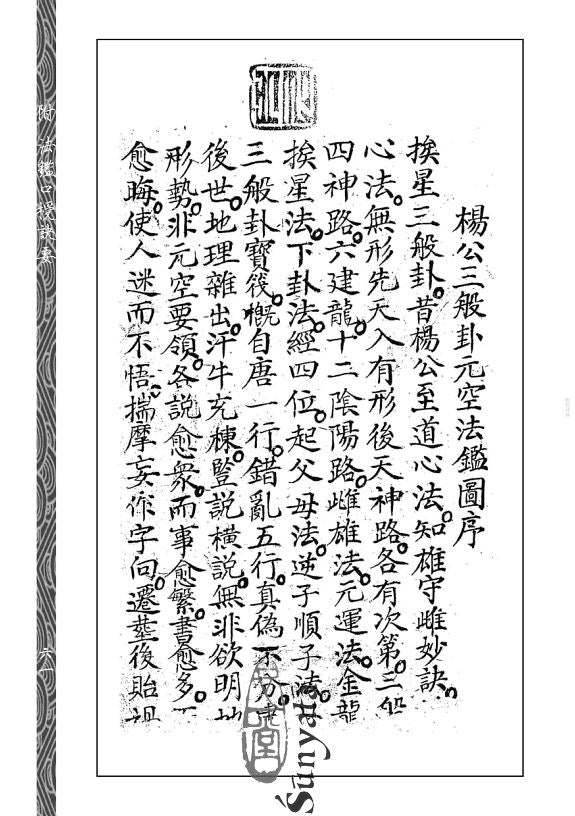 楊公三般卦元空法鑑圖序
挨星三般卦。昔楊公至道心法。知雄守雌妙訣。
心法。無形先天入有形後天神路。各有次第。三般
四神路。六建龍。十二陰陽路。雌雄法。元運法。金龍
挨星法。下卦法。經四位。起父母法。逆子順子法。
三般卦寶筏。概自唐一行。錯亂五行。真偽不分。
後世。地理雜出。汗牛充棟。豎說橫說。無非欲明地
形勢。非元空要領。各說愈衆。而事愈繁。書愈多。
愈晦。使人迷而不悟。揣摩妄作字句。遷塋後貽禍
附 法鑑口授訣要
六一
Śūnyatā